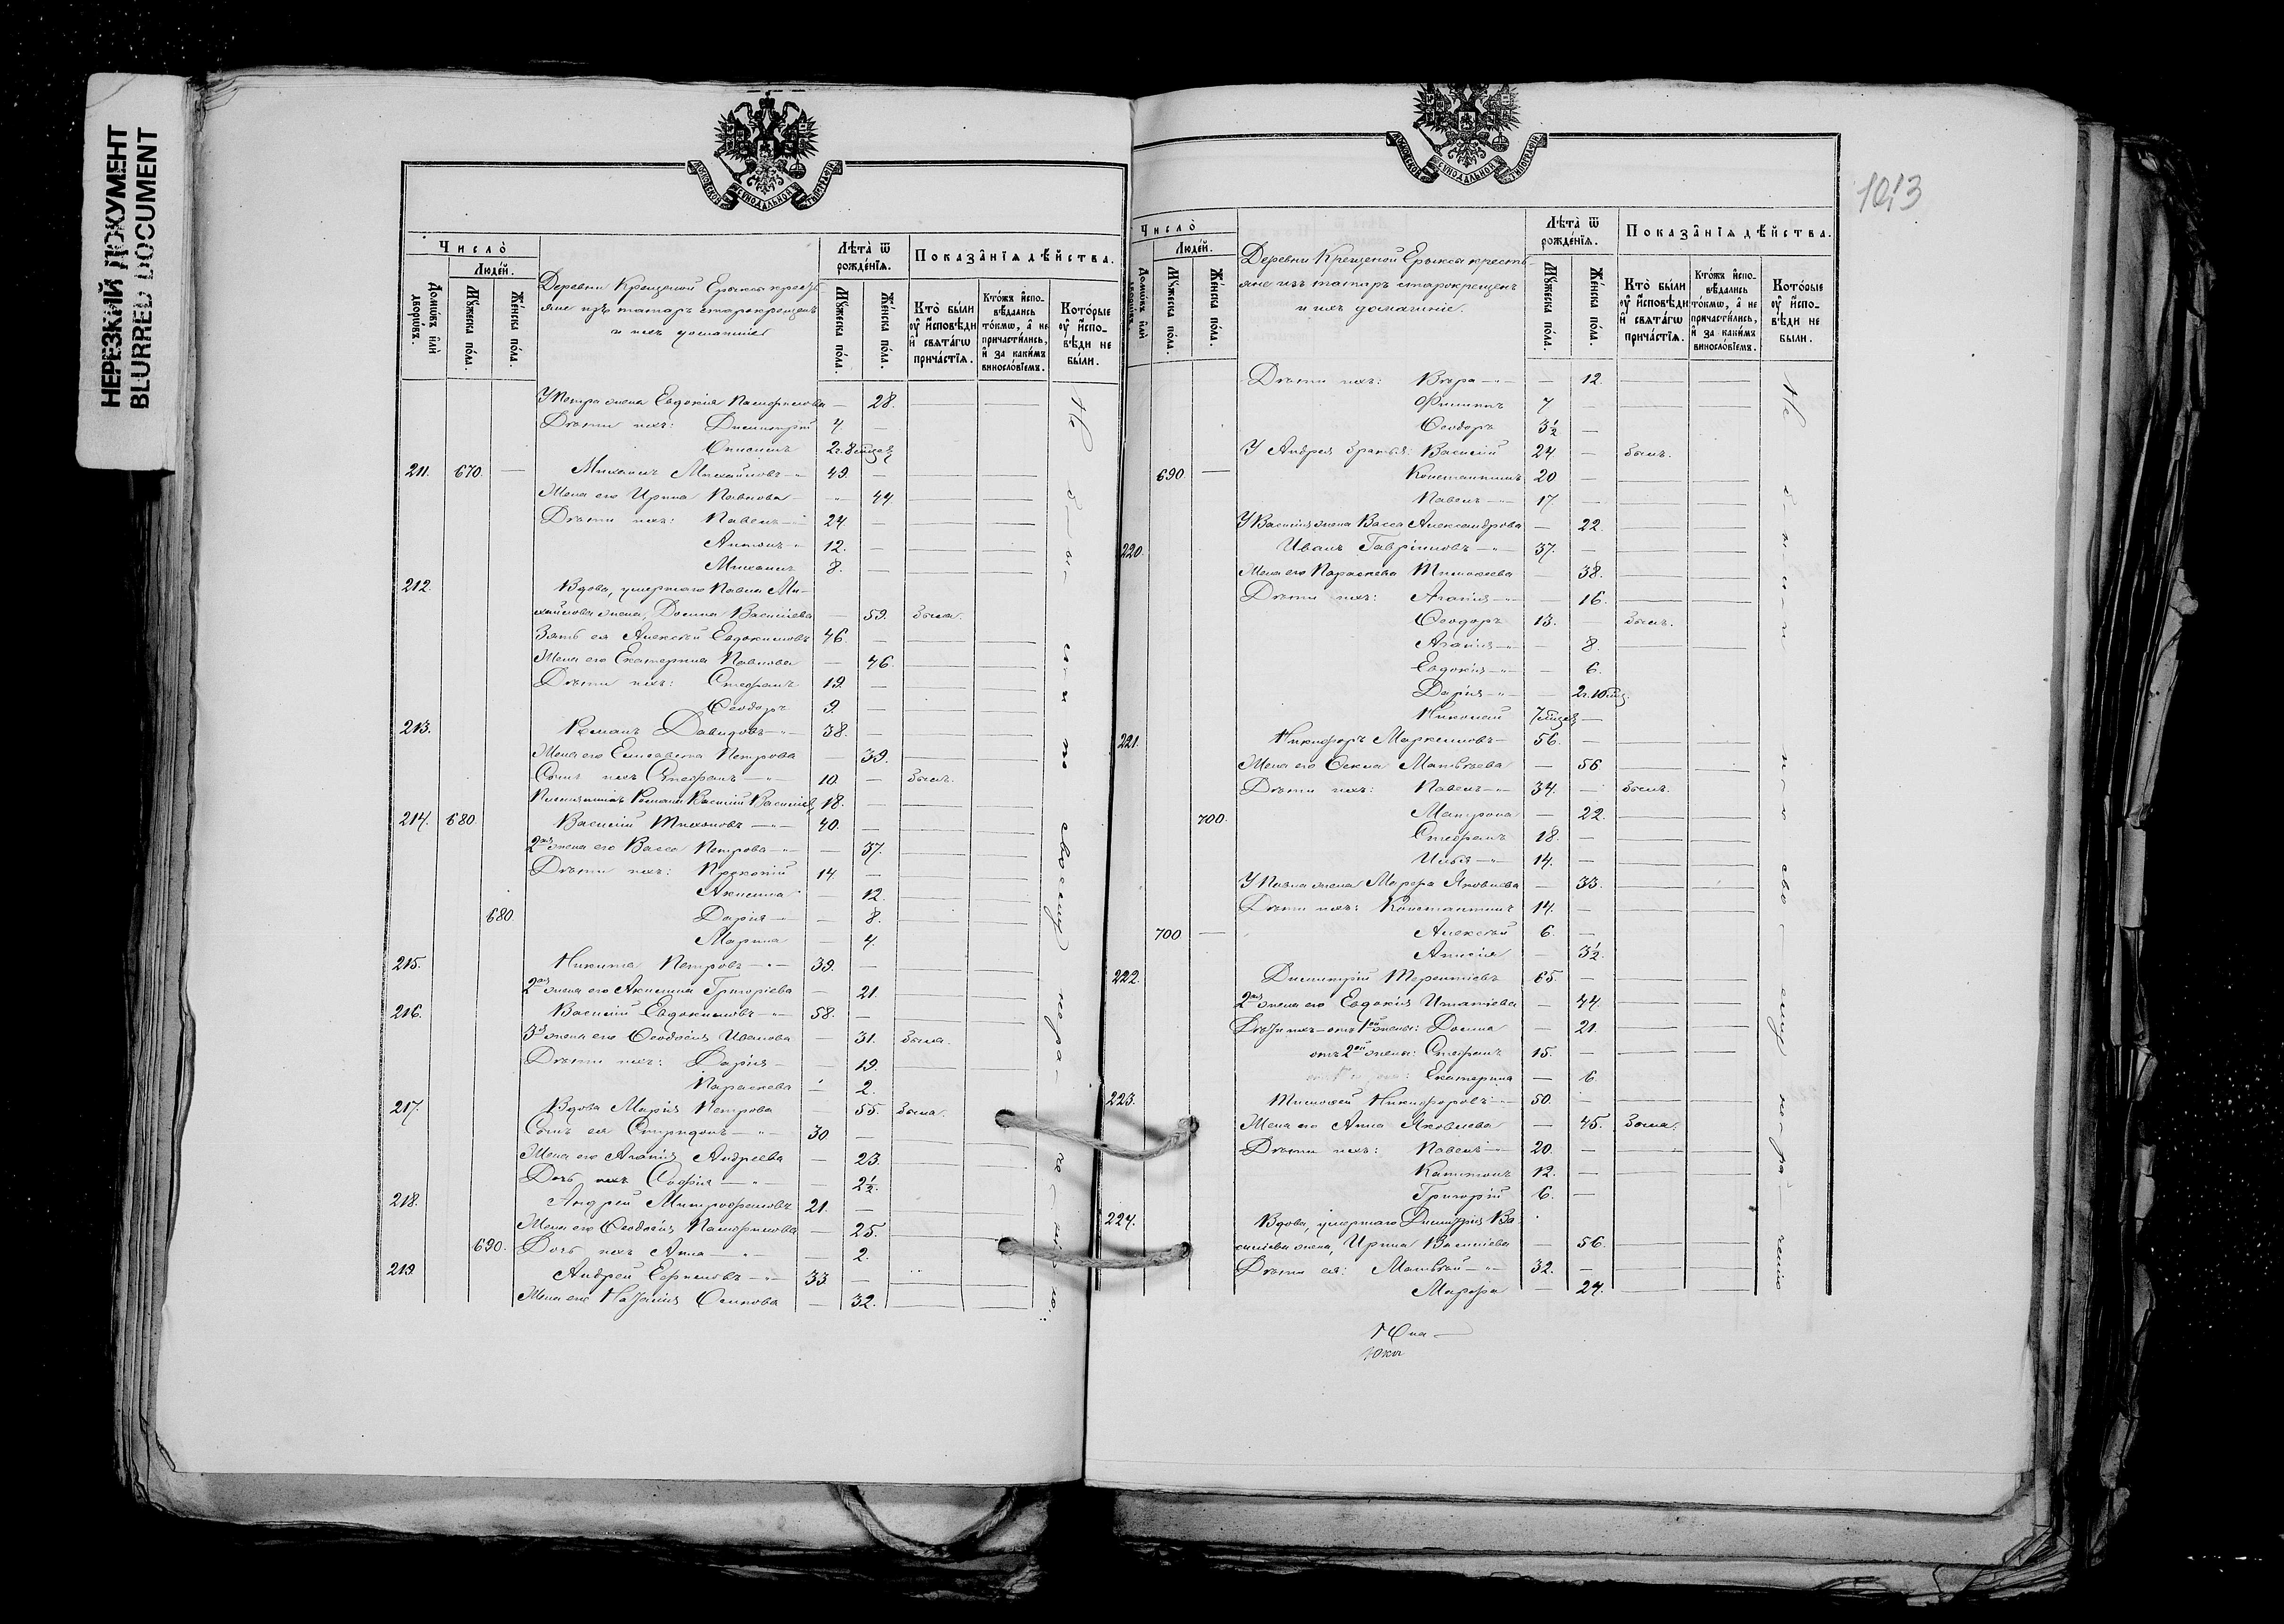 НЕРЕЗКИЙ ДОКУМЕНТ
BLURRED DOCUMENT
МОСКОВСКОЙ СѴНОДАЛЬНОЙ ТИПОГРАФІИ
Число̀
Люде́й.
Домѡ́въ и҆лѝ дворѡ́въ.
Мꙋ́жеска по́ла.
Же́нска по́ла.
Деревни Крещеной Ерыксы кресть-
яне изъ татаръ старокрещенъ
и ихъ домашніе
Лѣ́та ѿ рожде́нїѧ.
Мꙋ́жеска по́ла.
Же́нска по́ла.
Показа̑нїѧ дѣ́йства.
Кто̀ бы́ли оу҆ и҆́сповѣди и҆ свѧта́гѡ прича́стїѧ.
Кто́жъ и҆сповѣ́дались то́кмѡ, а҆ не причасти́лись, и҆ за каки́мъ винослові́емъ.
Кото́рые оу҆ и҆́сповѣди не бы́ли.
У Петра жена Евдокія Памфилова — 28.
Дѣти ихъ: Димитрій 4. —
2 г. 8 мѣсяц.
211. 670. — Михаилъ Михайловъ 49. —
Жена его Ирина Павлова — 44
Дѣти ихъ: Павелъ 24 —
Антонъ 12. —
Михаилъ 8. —
212. Вдова, умершаго Павла Ми-
хайлова жена, Домна Васильева — 59. была.
Зять ея Алексѣй Евдокимовъ 46. —
Жена его Екатерина Павлова — 46.
Дѣти ихъ: Стефанъ 19. —
Ѳеодоръ 9. —
213. Романъ Давидовъ 38. —
Жена его Елисавета Петрова — 39.
Сынъ ихъ Стефанъ 10. — былъ.
Племянникъ Романа Василій Васильевъ 18. —
214. 680. Василій Тихоновъ 40. —
2ая жена его Васса Петрова — 37.
Дѣти ихъ: Прокопій 14. —
Акилина — 12.
680. Дарія — 8.
Марина — 4.
215. Никита Петровъ 39. —
2ая жена его Акилина Григоріева — 21.
216. Василій Евдокимовъ 58. —
3я жена его Ѳеодосія Иванова — 31. была.
Дѣти ихъ: Дарія — 19.
Параскева — 2.
217. Вдова Марія Петрова — 55. была.
Сынъ ея Спиридонъ 30. —
Жена его Агапія Андреева — 23.
Дочь ихъ Софія — 2½.
218. Андрей Митрофановъ 21. —
Жена его Ѳеодосія Памфилова — 25.
690. Дочь ихъ Анна — 2.
219. Андрей Ефимовъ 33 —
Жена его Наталія Осипова — 32.
Не были по своему нераченію.
1013
МОСКОВСКОЙ СѴНОДАЛЬНОЙ ТИПОГРАФІИ
Число̀
Люде́й.
Домѡ́въ и҆лѝ дворѡ́въ.
Мꙋ́жеска по́ла.
Же́нска по́ла.
Деревни Крещеной Ерыксы кресть-
яне изъ татаръ старокрещенъ
и ихъ домашніе.
Лѣ́та ѿ рожде́нїѧ.
Мꙋ́жеска по́ла.
Же́нска по́ла.
Показа̑нїѧ дѣ́йства.
Кто̀ бы́ли оу҆ и҆́сповѣди и҆ свѧта́гѡ прича́стїѧ.
Кто́жъ и҆сповѣ́дались то́кмѡ, а҆ не причасти́лись, и҆ за каки́мъ винослові́емъ.
Кото́рые оу҆ и҆́сповѣди не бы́ли.
Дѣти ихъ: Вѣра — 12.
Филиппъ 7 —
Ѳеодоръ 3½ —
У Андрея братья: Василій 24 — былъ.
690 — Константинъ 20 —
Павелъ 17. —
У Василія жена Васса Александрова — 22.
220. Иванъ Гавріиловъ 37. —
Жена его Параскева Тимоѳеева — 38.
Дѣти ихъ: Агапія — 16.
Ѳеодоръ 13. — былъ.
Агапія — 8.
Евдокія — 6.
Дарія — 2 г. 10 мѣс.
Николай 7 мѣсяц. —
221. Никифоръ Маркелловъ 56. —
Жена его Ѳекла Матвѣева — 56
Дѣти ихъ: Павелъ 34. — былъ.
700. Матрона — 22.
Стефанъ 18. —
Илья 14. —
У Павла жена Марфа Яковлева — 33.
Дѣти ихъ: Константинъ 14. —
700 — Алексѣй 6. —
Анисія — 3½.
222. Димитрій Терентіевъ 65. —
2ая жена его Евдокія Игнатіева — 44.
Дѣти ихъ отъ 1ой жены: Домна — 21.
отъ 2ой жены: Стефанъ 15. —
Екатерина — 6.
223. Тимоѳей Никифоровъ 50. —
Жена его Анна Яковлева — 45. была.
Дѣти ихъ: Павелъ 20. —
Капитонъ 12. —
Григорій 6. —
224. Вдова, умершаго Димитрія Ва-
сильева жена, Ирина Васильева — 56.
Дѣти ея: Матвѣй 32. —
Марфа — 24.
Не были по своему нераченію